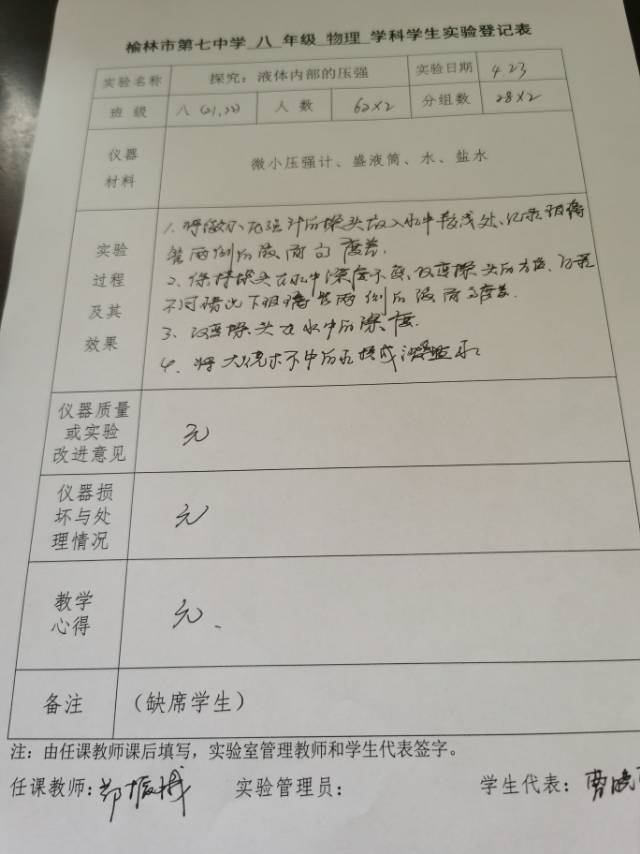 榆林市第七中学 八 年级 物理 学科学生实验登记表
实验名称 探究：液体内部的压强 实验日期 4.23
班 级 八(21,22) 人 数 62×2 分组数 28×2
仪器
材料
微小压强计、盛液筒、水、盐水
实验
过程
及其
效果
1、将微小压强计的探头放入水中较浅处、记录
管两侧的液面高度差.
2、保持探头在水中深度不变,改变探头的方向、记录
不同情况下 两侧的液面高度差.
3、改变探头在水中的深度.
4、将 换成
仪器质量
或实验
改进意见
无
仪器损
坏与处
理情况
无
教学
心得
无、
备注 （缺席学生）
注：由任课教师课后填写，实验室管理教师和学生代表签字。
任课教师：郑振 实验管理员： 学生代表：曹晓